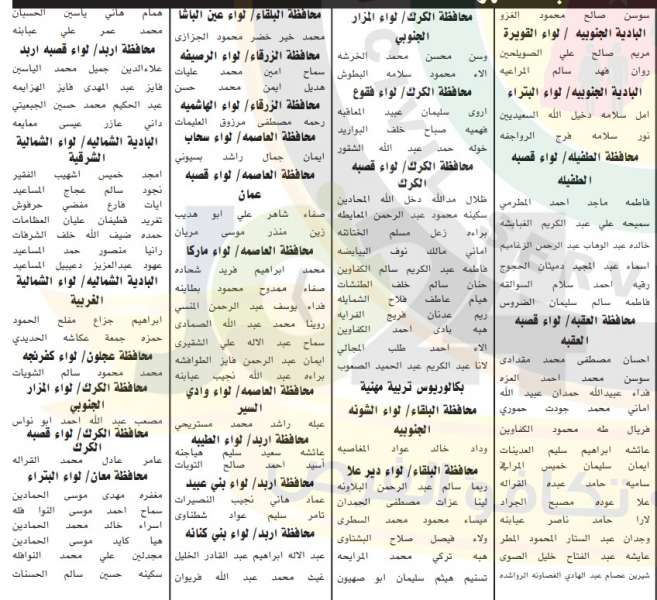 سوسن صالح محمود الغزو
البادية الجنوبيه / لواء القويرة
مريم صالح علي الصويلحين
روان فهد سالم المراعيه
البادية الجنوبيه/ لواء البتراء
امل سلامه دخيل الله السعيديين
نور سلامه فرج الرواجفه
محافظة الطفيله/ لواء قصبه
الطفيله
فاطمه ماجد احمد المطرمي
سميحه علي عبد الكريم الغبابشه
خالده عبد الوهاب عبد الرحمن الزغاميم
اسماء عبد المجيد دميثان الحجوج
رقيه احمد سلام السوالقه
فاطمه سالم سليمان الضروس
محافظة العقبه/ لواء قصبه
العقبه
احسان مصطفى محمد مقدادى
سوسن محمد احمد العزه
فداء عبيدالله حمدان عبيد الله
اماني محمد جودت حموري
فريال طه محمود الكفاوين
عائشه ابراهيم سليم العدينات
ايمان سليمان خميس المرافي
ساميه حامد عبده القراله
علا عوده مصبح الجراد
لارا حامد ناصر عبابنه
وجدان عبد الستار المحمود المطر
عايشه عبد الفتاح خليل الصوى
شيرين عصام عبد الهادي الغصاونه الرواشده
محافظة الكرك/ لواء المزار
الجنوبي
وسن محسن محمد الخرشه
الاء محمود سلامه البطوش
محافظة الكرك/ لواء فقوع
اروى سليمان عبيد المعاقبه
فهميه صباح خلف البواريد
خوله حمد عبد الله الشقور
محافظة الكرك/ لواء قصبه
الكرك
ظلال مدالله دخل الله المحادين
سكينه محمود عبد الرحمن المعايطه
براءه زعل مسلم الختاتنه
اماني مالك نوف البيايضه
فاطمه عبد الكريم سالم الكفاوين
حنان سالم خلف الطنشات
هيام عاطف فلاح الشمايله
ريم عدنان فريج الغرايه
هبه بادى احمد الكفاوين
الاء احمد طلب المجالي
لانا عبد الكريم عبد الحميد الصعوب
بكالوريوس تربية مهنية
محافظة البلقاء/ لواء الشونه
الجنوبيه
وداد خالد عواد المغاصبه
محافظة البلقاء/ لواء دير علا
ريما سالم عبد الرحمن البلاونه
لينا عزات مصطفى الحمدان
ميساء محمود محمد السطرى
ولاء فيصل صلاح البشتاوى
هبه تركي محمد المرايحه
تسنيم هيثم سليمان ابو صهيون
محافظة البلقاء/ لواء عين الباشا
محمد خير خضر محمود الجزازى
محافظة الزرقاء/ لواء الرصيفه
سماح امين محمد عليات
هديل ايمن محمد حسن
محافظة الزرقاء/ لواء الهاشميه
رحمه مصطفى مرزوق العليمات
محافظة العاصمه/ لواء سحاب
ايمان جمال راشد بسيوني
محافظة العاصمه/ لواء قصبه
عمان
صفاء شاهر علي ابو هديب
زين منذر موسى مريان
محافظة العاصمه/ لواء ماركا
محمد ابراهيم فريد شحاده
صفاء ممدوح محمود بطاينه
فداء يوسف عبد الرحمن المنسي
روينا محمد عبد الله الصمادى
سماح عبد الاله علي الشقيرى
ايمان عبد الرحمن فايز الطوافشه
براءه عبد الله نجيب عبابنه
محافظة العاصمه/ لواء وادي
السير
عبله راشد محمد مستريحي
محافظة اربد/ لواء الطيبه
عائشه سعيد سليم هياجنه
أسيد احمد صالح التويات
محافظة اربد/ لواء بني عبيد
عماد هاني نجيب النصيرات
تامر سليم عواد شطناوى
محافظة اربد/ لواء بني كنانه
عبد الاله ابراهيم عبد القادر الخليل
غيث محمد عبد الله فريوان
همام هاني ياسين الحسبان
محمد عمر علي عبابنه
محافظة اربد/ لواء قصبه اربد
علاءالدين جميل محمد الياسين
فايز عبد المهدى فايز الهزايمه
عبد الحكيم محمد حسين الجبعيتي
داني عازر عيسى معايعه
البادية الشماليه/ لواء الشمالية
الشرقية
امجد خميس اشهيب الفقير
نجود سالم عجاج المساعيد
ايات فارع مفضي حرفوش
تغريد قطيفان عليان العظامات
حمده ضيف الله خلف الشرفات
رانيا منصور حمد المساعيد
عهود عبدالعزيز دعيبيل المساعيد
البادية الشماليه/ لواء الشمالية
الغربية
ابراهيم جزاع مفلح الحمود
حمزه جمعة عكاشه الحديدي
محافظة عجلون/ لواء كفرنجه
محمد محمود سالم الشويات
محافظة الكرك/ لواء المزار
الجنوبي
مصعب عبد الله احمد ابو نواس
محافظة الكرك/ لواء قصبه
الكرك
عامر عادل محمد القراله
محافظة معان/ لواء البتراء
مغفره مهدى موسى الحمادين
سماح احمد موسى النوا فله
اسراء خالد محمد الحمادين
هيا كايد موسى الحمادين
مجدلين علي محمد النوافله
سكينه حسين سالم الحسنات